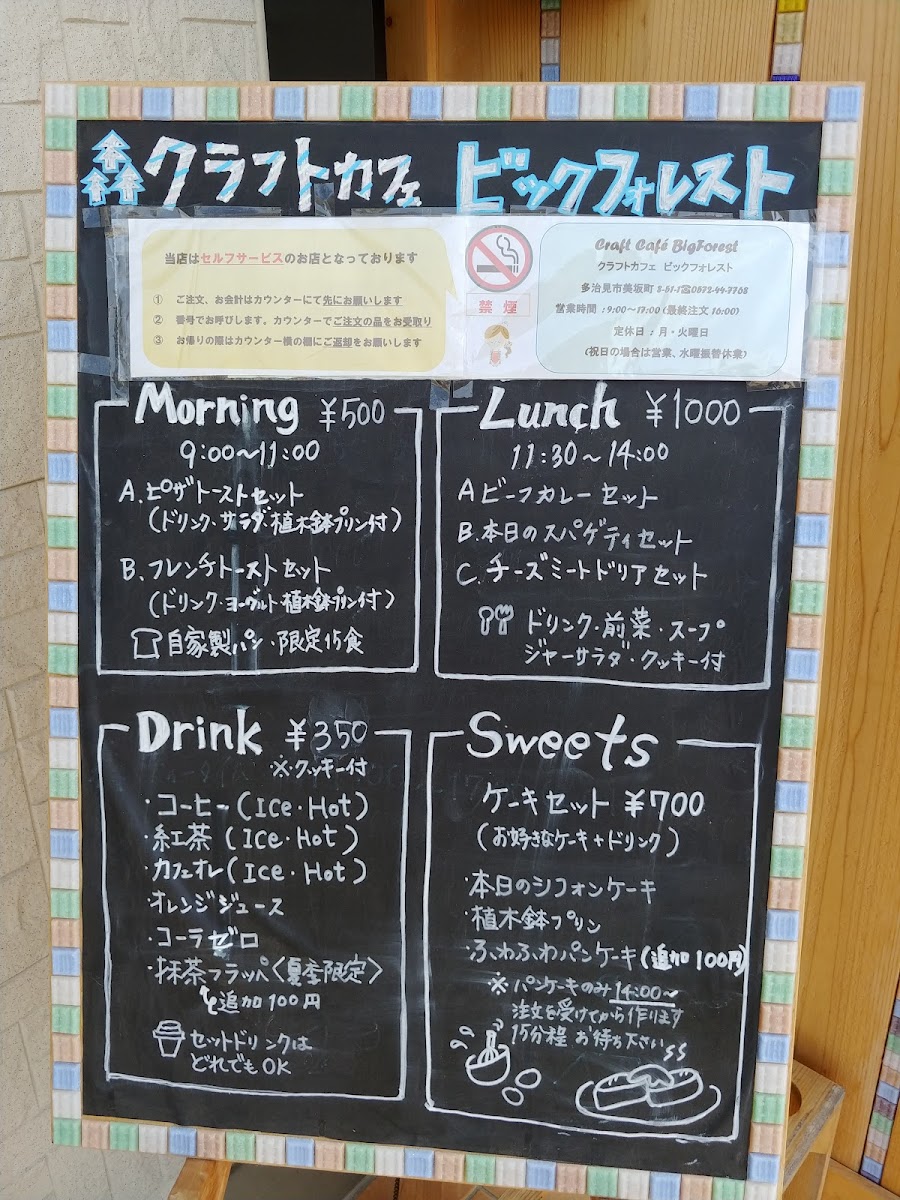 クラフトカフェ ビックフォレスト
当店はセルフサービスのお店となっております
① ご注文、お会計はカウンターにて先にお願いします
② 番号でお呼びします。カウンターでご注文の品をお受取り
③ お帰りの際はカウンター横の棚にご返却をお願いします
禁煙
Craft Café BigForest
クラフトカフェ ビックフォレスト
多治見市美坂町 8-61-1☎0572-44-7768
営業時間 : 9:00〜17:00 (最終注文 16:00)
定休日 : 月・火曜日
(祝日の場合は営業、水曜振替休業)
Morning ¥500
9:00〜11:00
A. ピザトーストセット
(ドリンク・サラダ・植木鉢プリン付)
B. フレンチトーストセット
(ドリンク・ヨーグルト・植木鉢プリン付)
自家製パン・限定15食
Lunch ¥1000
11:30〜14:00
A ビーフカレーセット
B. 本日のスパゲティセット
C. チーズミートドリアセット
ドリンク・前菜・スープ
ジャーサラダ・クッキー付
Drink ¥350
※クッキー付
・コーヒー (Ice・Hot)
・紅茶 (Ice・Hot)
・カフェオレ (Ice・Hot)
・オレンジジュース
・コーラゼロ
・抹茶フラッペ〈夏季限定〉
追加100円
セットドリンクは
どれでもOK
Sweets
ケーキセット ¥700
(お好きなケーキ+ドリンク)
・本日のシフォンケーキ
・植木鉢プリン
・ふわふわパンケーキ(追加100円)
※パンケーキのみ14:00〜
注文を受けてから作ります
15分程 お待ち下さい